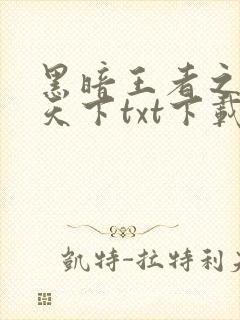 黑暗王者之
天下txt下載
凱特-拉特利夫